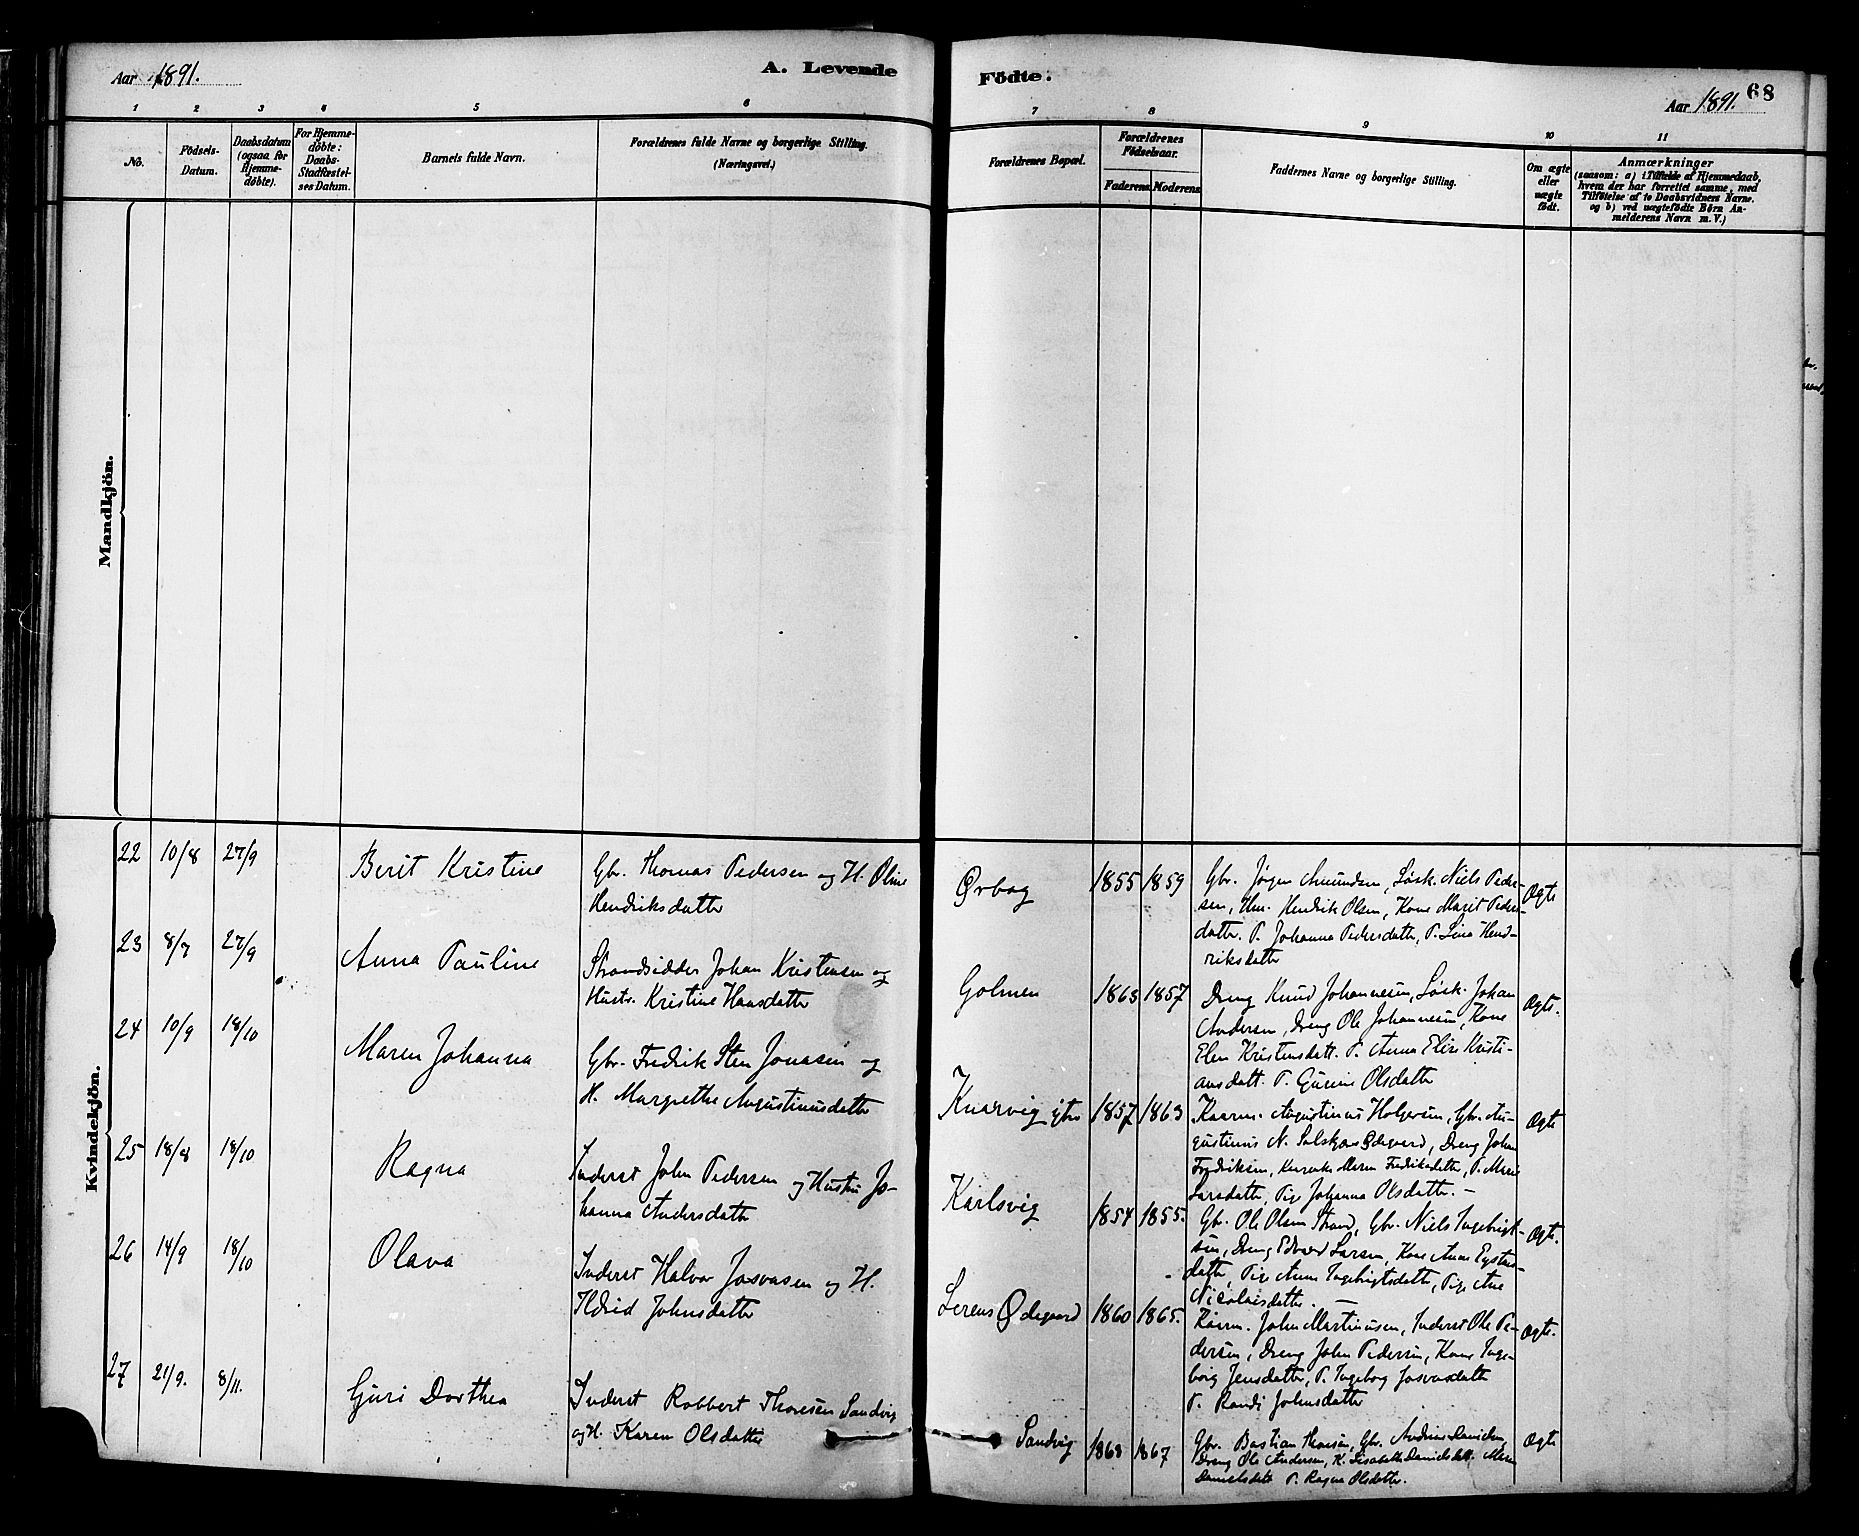 Aar 1891.
A. Levende
Födte.
Aar 1891.
68
1 2 3 4 5 6
7 8 9 10 11
No.
Födsels-
Datum.
Daabsdatum
(ogsaa for
Hjemme-
döbte).
For Hjemme-
döbte:
Daabs-
Stadfæstel-
ses Datum.
Barnets fulde Navn.
Forældrenes fulde Navne og borgerlige Stilling.
(Næringsvei.)
Forældrenes Bopæl.
Forældrenes
Födselsaar.
Faderens. Moderens.
Faddernes Navne og borgerlige Stilling.
Om ægte
eller
uægte
födt.
Anmærkninger
(saasom: a) i Tilfælde af Hjemmedaab,
hvem der har forrettet samme, med
Tilföielse af to Daabsvidners Navne.
og b) ved uægtefödte Börn An-
melderens Navn m. V.)
Mandkjön.
Kvindekjön.
22 10/8 27/9 Berit Kristine
Gbr. Thomas Pedersen og H. Oline
Hendriksdatter
Ørbog 1855 1859
Gbr. Jørgen Amundsen, Løsk. Niels Peder-
sen, Hm. Hendrik Olsen, Kone Marit Peders-
datter. P. Johanna Pedersdatter, P. Lina Hend-
riksdatter
Ægte
23 8/7 27/9 Anna Pauline
Strandsidder Johan Kristensen og
Hustr. Kristine Hansdatter
Golmen 1863 1857
Dreng Knud Johannesen, Løsk. Johan
Andersen, Dreng Ole Johannesen, Kone
Elen Kristensdatt. P. Anna Elise Kristi-
ansdatt. P. Gurine Olsdatter
Ægte.
24 10/9 18/10 Maren Johanna
Gbr. Fredrik Sten Jonasen og
H. Margrethe Augustinusdatter
Knarvig ytre 1857 1863
Kaarm. Augustinus Holgersen, Gbr. Au-
gustinus N. Ødegaard, Dreng Johan
Fredriksen, Maren Fredriksdatter, P. Maren
Larsdatter, Pige Johanna Olsdatter. –
Ægte
25 18/8 18/10 Ragna
Inderst John Pedersen og Hustru Jo-
hanna Andersdatter
Karlsvig 1854 1855.
Gbr. Ole Olsen Strand, Gbr. Niels Ingebrigt-
sen, Dreng Edvard Larsen, Kone Anne
datter, Pige Anne Ingebrigtsdatter, Pige Ane
Nicolaisdatter. –
Ægte.
26 14/9 18/10 Olava
Inderst Halvor Josvasen og H.
Ildrid Johnsdatter
Lerens Ødegaard 1860 1865.
Kaarm. John Martinusen, Inderst Ole Pe-
dersen, Dreng John Pedersen, Kone Inge-
borg Jensdatter, P. Ingeborg Josvasdatter
P. Randi Johnsdatter
Ægte.
27 21/9. 8/11. Guri Dorthea
Inderst Robbert Thoresen Sandvig
og H. Karen Olsdatter
Sandvig 1863 1867
Gbr. Bastian Thoresen, Gbr. Andreas Danielsen,
Dreng Ole Andersen, K. Lisabeth Danielsdatt. Maren
Danielsdatt P. Ragna Olsdatter.
Ægte